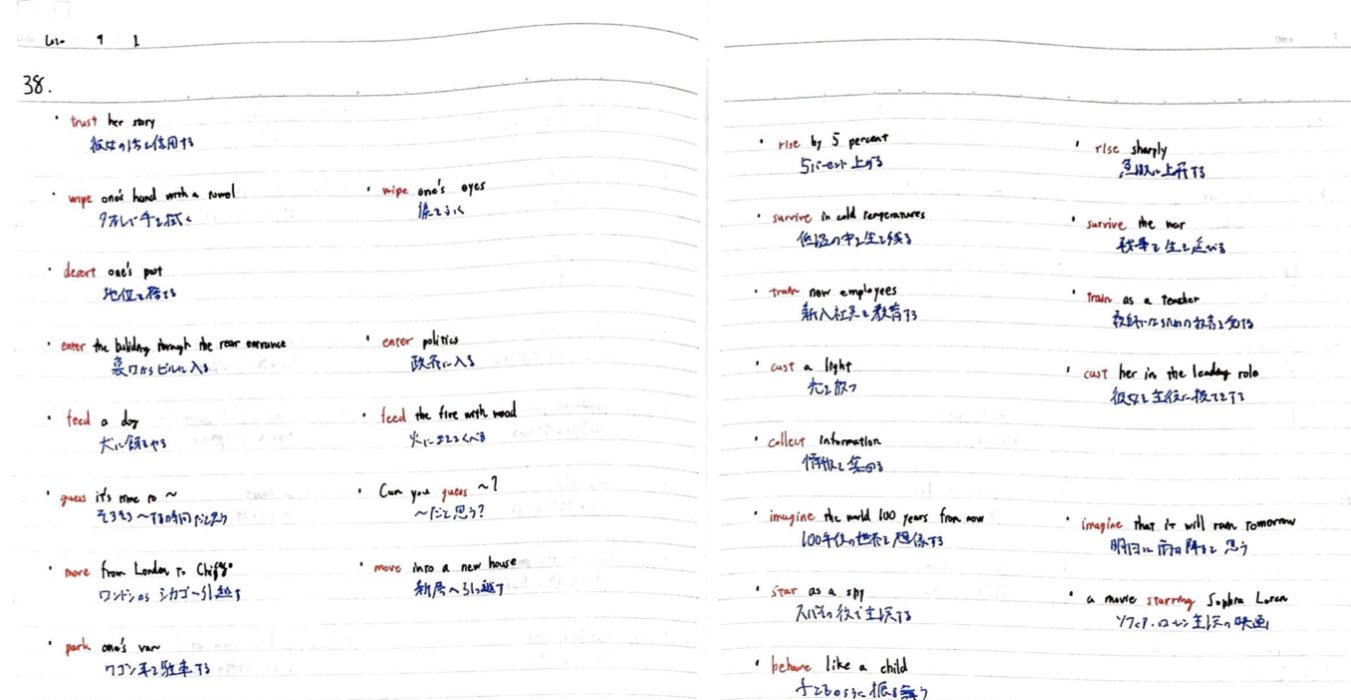 38.
・trust her story
彼女の話を信用する
・wipe one's hand with a towel
タオルで手を拭く
・wipe one's eyes
涙をふく
・desert one's post
地位を捨てる
・enter the building through the rear entrance
裏口からビルに入る
・enter politics
政界に入る
・feed a dog
犬に餌をやる
・feed the fire with wood
火にまきをくべる
・guess it's time to ～
そろそろ～する時間だと思う
・Can you guess ～?
～だと思う?
・move from London to
ロンドンから シカゴへ引越す
・move into a new house
新居へ引っ越す
・park one's van
ワゴン車を駐車する
・rise by 5 percent
5パーセント上がる
・rise sharply
急激に上昇する
・survive in cold temperatures
低温の中を生き残る
・survive the war
戦争を生き延びる
・train new employees
新入社員を教育する
・train as a teacher
教師になるための教育を受ける
・cast a light
光を放つ
・cast her in the leading role
彼女を主役に抜てきする
・collect information
情報を集める
・imagine the world 100 years from now
100年後の世界を想像する
・imagine that it will rain tomorrow
明日は雨が降ると思う
・star as a spy
スパイの役で主演する
・a movie starring Sophia Loren
ソフィア・ローレン主演の映画
・behave like a child
子どものように振る舞う